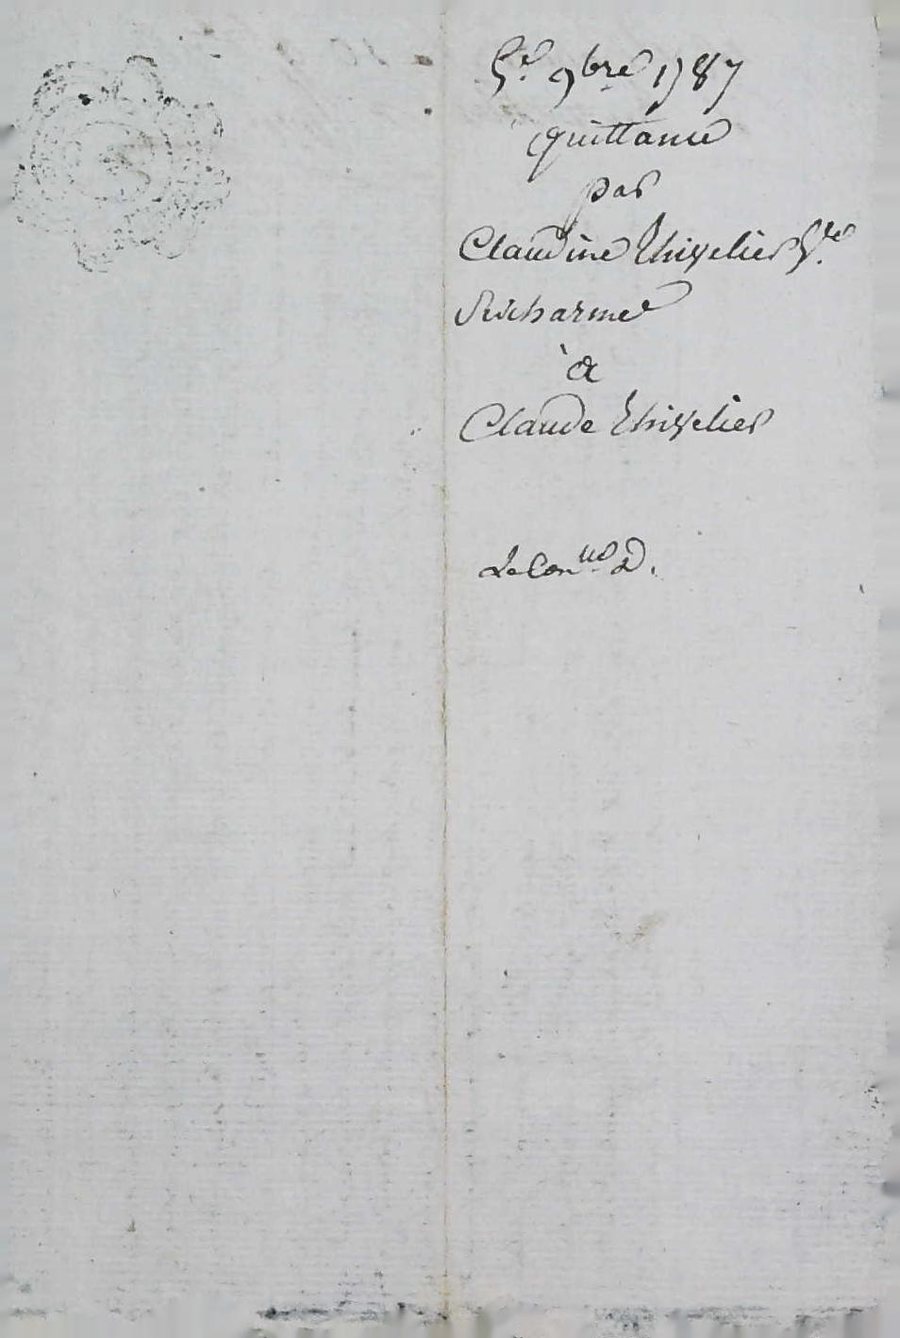 5.e 9bre 1787
quittance
par
Claudine Thivelier V.ve
Richarme
à
Claude Thivelier